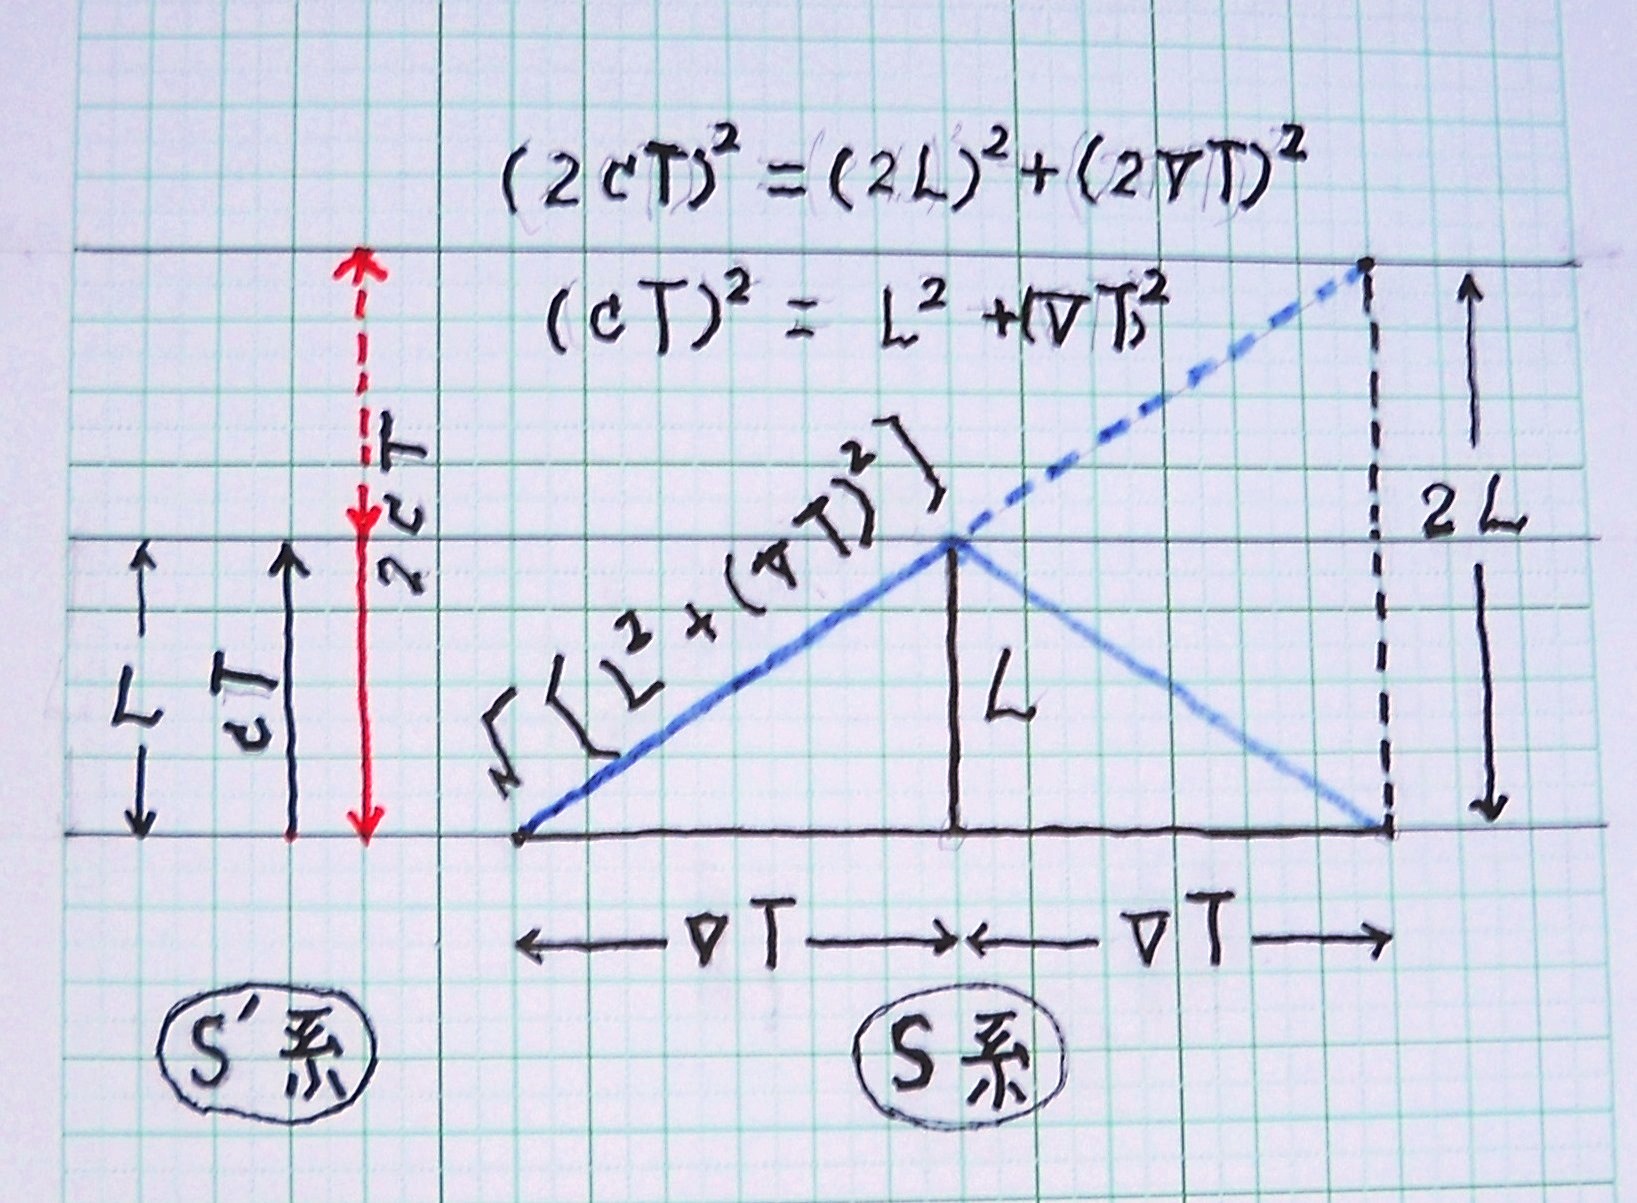 (2cT)² = (2L)² + (2vT)²
(cT)² = L² + (vT)²
√[L² + (vT)²]
2cT
L
cT
L
2L
vT
vT
S′系
S系